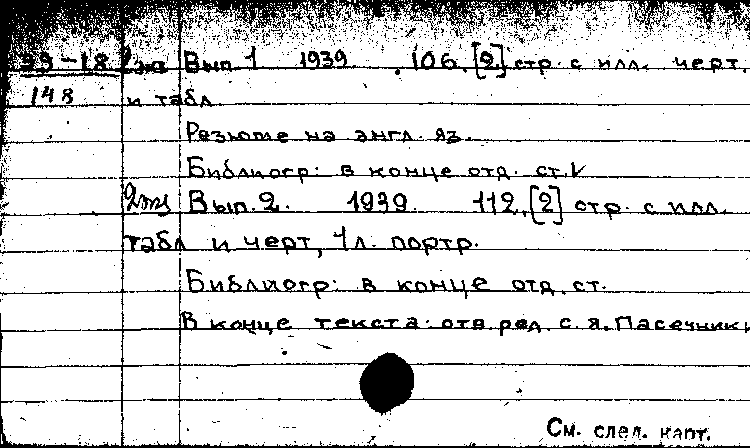 39-18 2экз Вып 1 1939. 106, [2] стр. с илл. черт.
148 и табл.
Резюме на англ. яз.
Библиогр: в конце отд. ст. V
2экз Вып. 2. 1939. 112, [2] стр. с илл.
табл и черт, 1 л. портр.
Библиогр: в конце отд. ст.
В конце текста: отв. ред. С. Я. Пасечник,
См. след. карт.